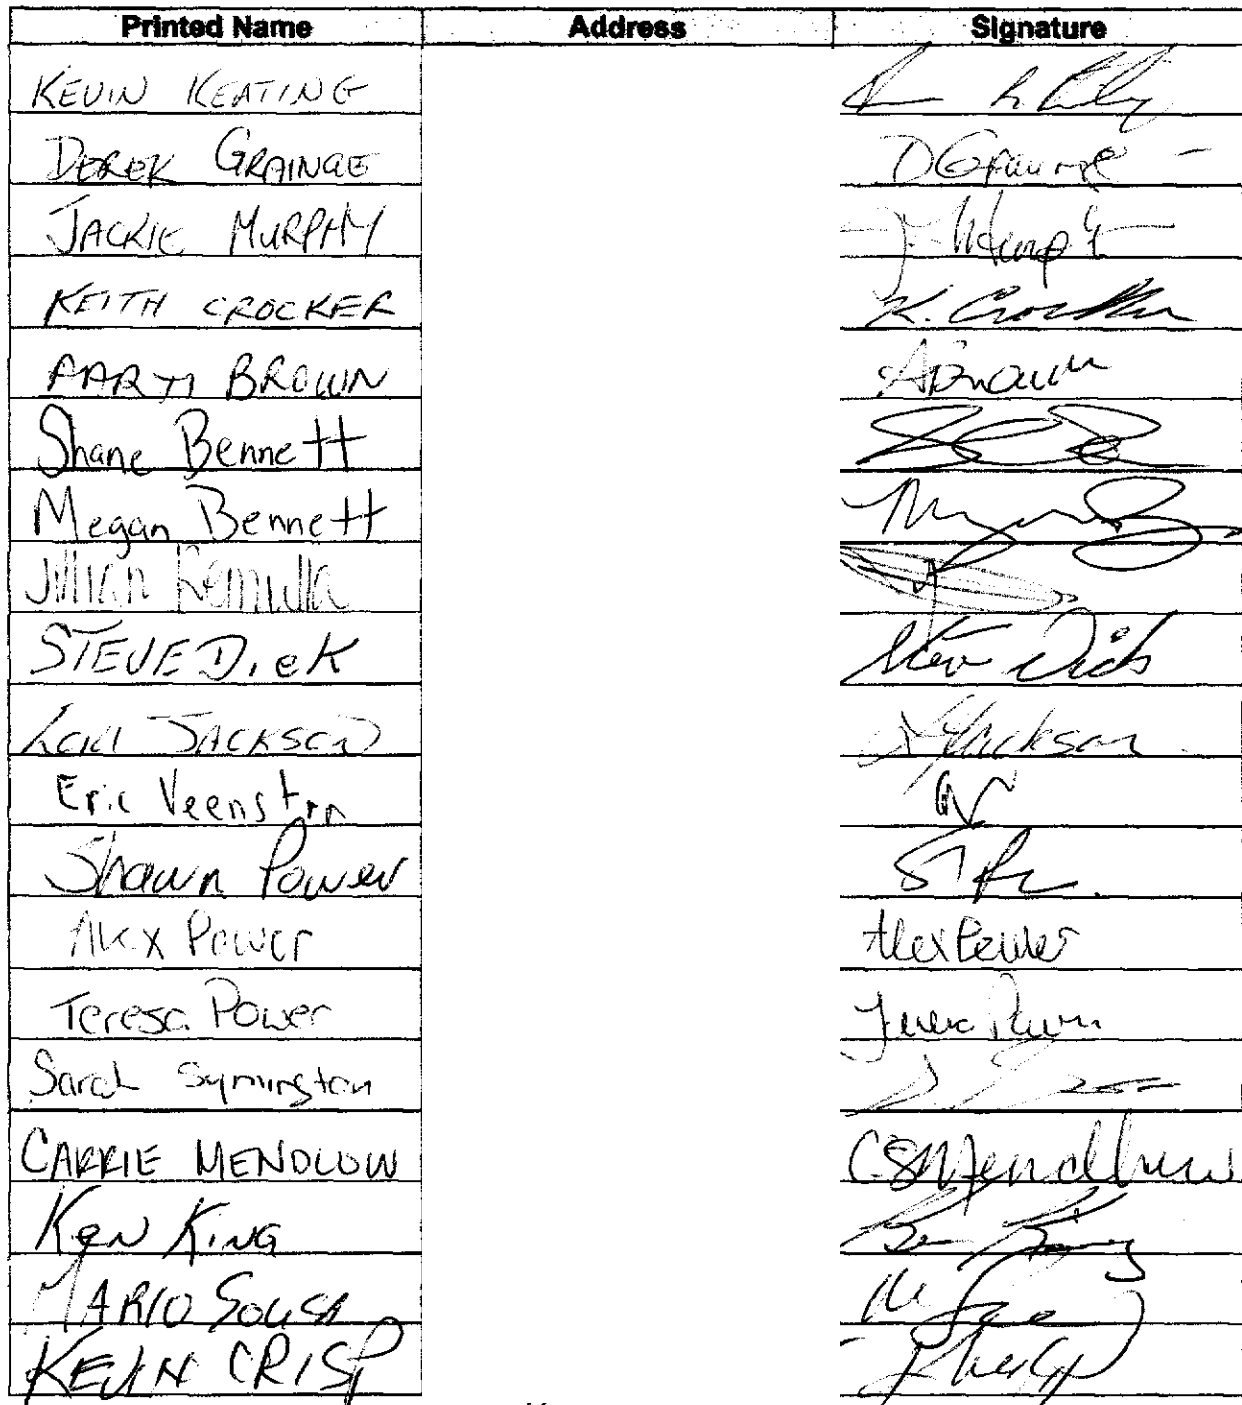 Printed Name Address Signature
KEVIN KEATING
DEREK GRAINGE DGrainge
JACKIE MURPHY J. Murphy
KEITH CROCKER K. Crocker
AARTI BROWN ABrown
Shane Bennett
Megan Bennett
Jillian Remulla
STEVE DicK Steve Dick
LORI JACKSON LJackson
Eric Veenstra EV
Shawn Power
Alex Power Alex Power
Teresa Power Teresa Power
Sarah Symington
CARRIE MENDLOW CSMendlow
Ken KiNG Ken King
MARIO SOUSA
KEVIN CRISP